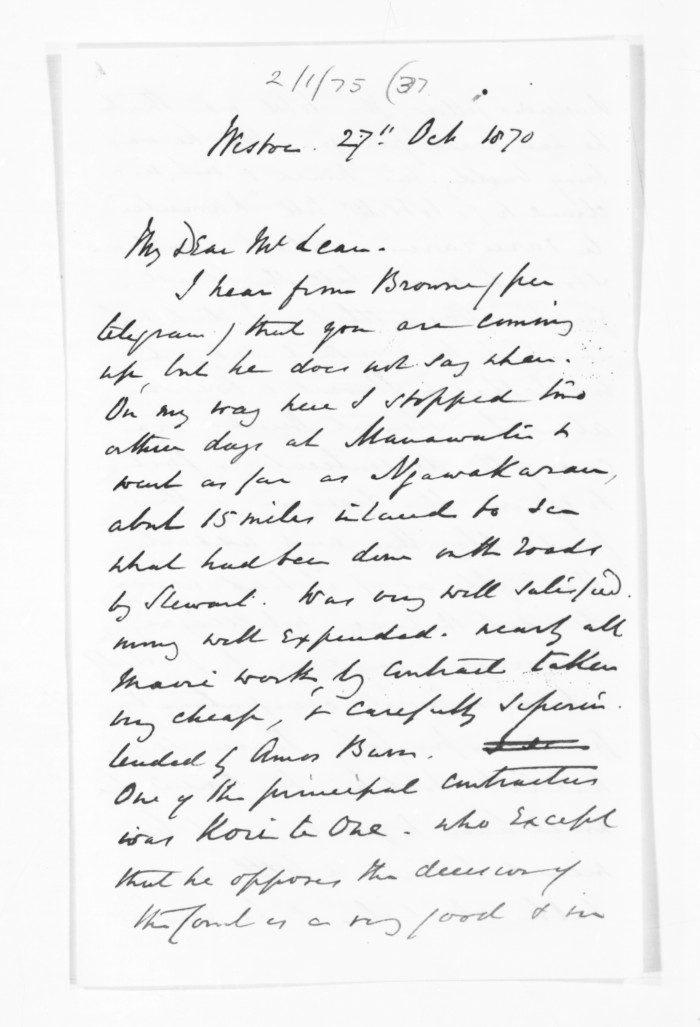 2/1/75 (37
Westoe. 27" Oct 1870
My Dear McLean.
I hear from Browne (per
telegram) that you are coming
up, but he does not say when.
On my way here I stopped two
or three days at Manawatu &
went as far as Ngawakarau,
about 15 miles inland to see
what had been done on the roads
by Stewart. Was very well satisfied.
money well expended. nearly all
Maori work, by contract taken
very cheap, & carefully superin
tended by Amos Burr.
One of the principal contractors
was Kori te One. who except
that he opposes the decision of
the Court is a very good &